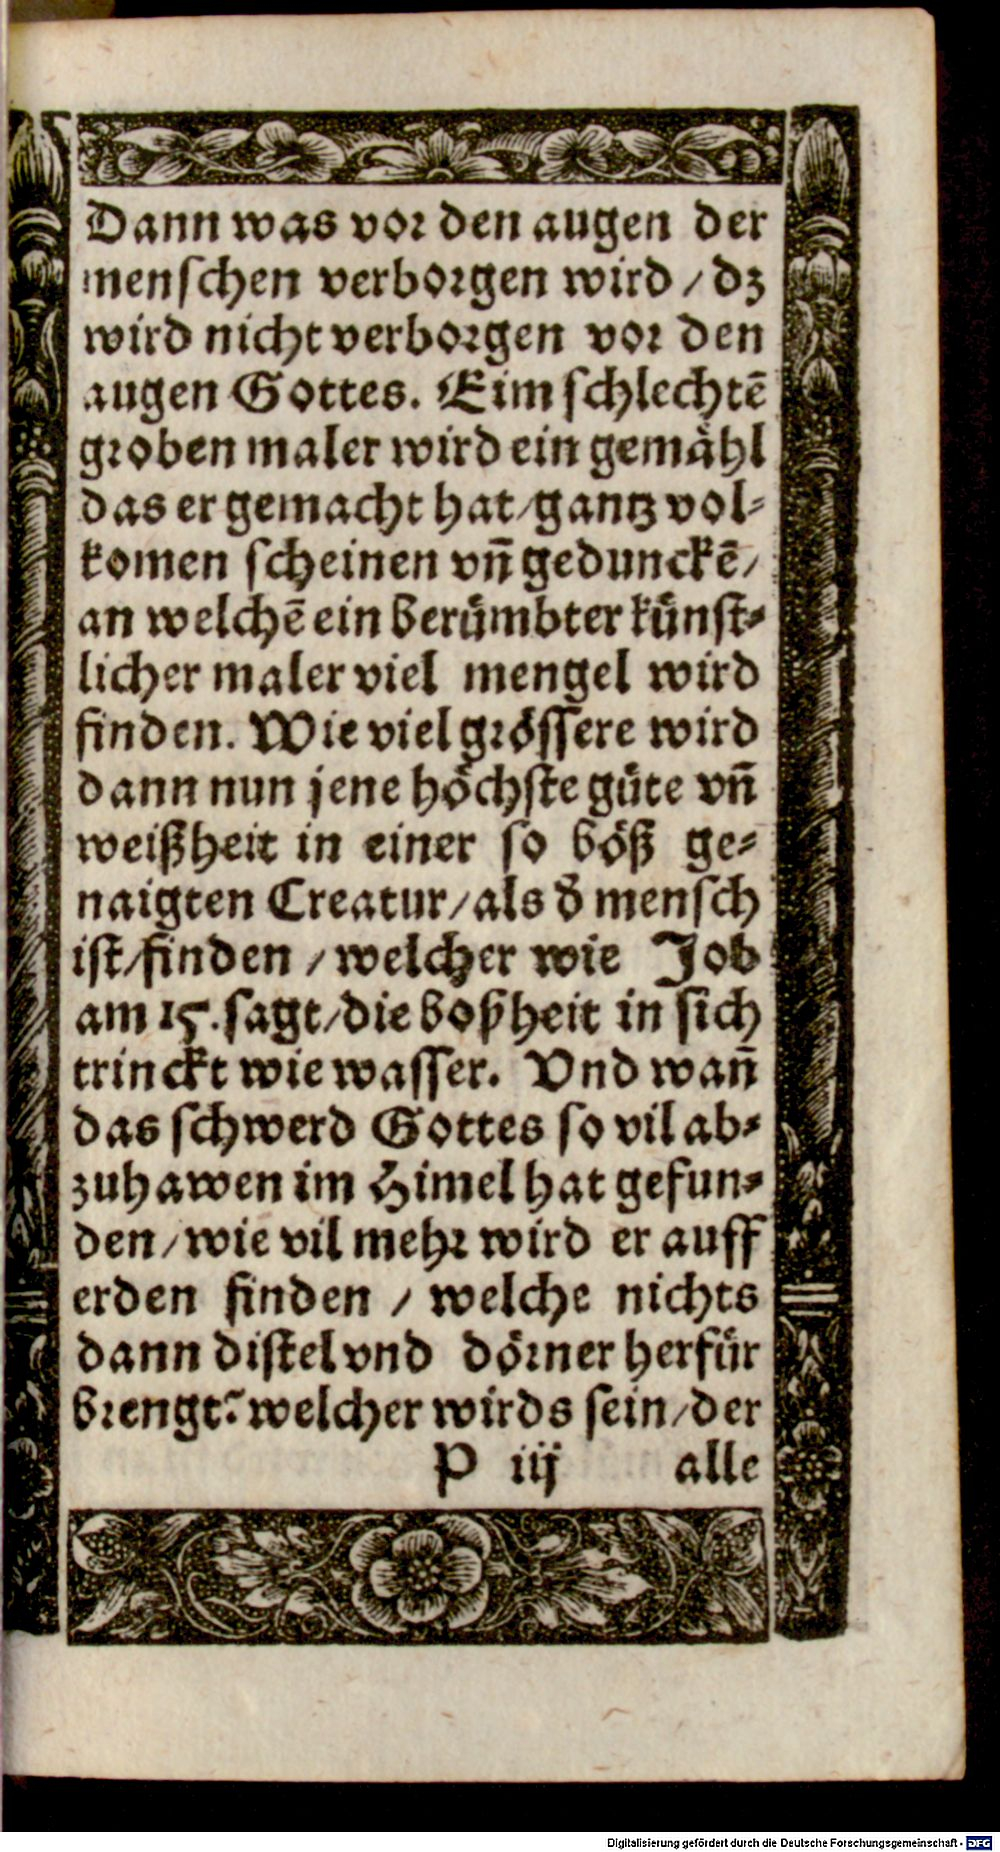 Dann was vor den augen der
menschen verborgen wird / dz
wird nicht verborgen vor den
augen Gottes. Eim schlechtē
groben maler wird ein gemåhl
das er gemacht hat / gantz vol-
komen scheinen vn̄ geduncktē /
an welchē ein berůmbter kůnst-
licher maler viel mengel wird
finden. Wie viel grössere wird
dann nun jene höchste gůte vn̄
weißheit in einer so böß ge-
naigten Creatur / als d' mensch
ist / finden / welcher wie Job
am 15. sagt / die boßheit in sich
trinckt wie wasser. Vnd wan̄
das schwerd Gottes so vil ab-
zuhawen im Himel hat gefun-
den / wie vil mehr wird er auff
erden finden / welche nichts
dann distel vnd dörner herfůr
brengt? welcher wirds sein / der
P iij alle
Digitalisierung gefördert durch die Deutsche Forschungsgemeinschaft - DFG